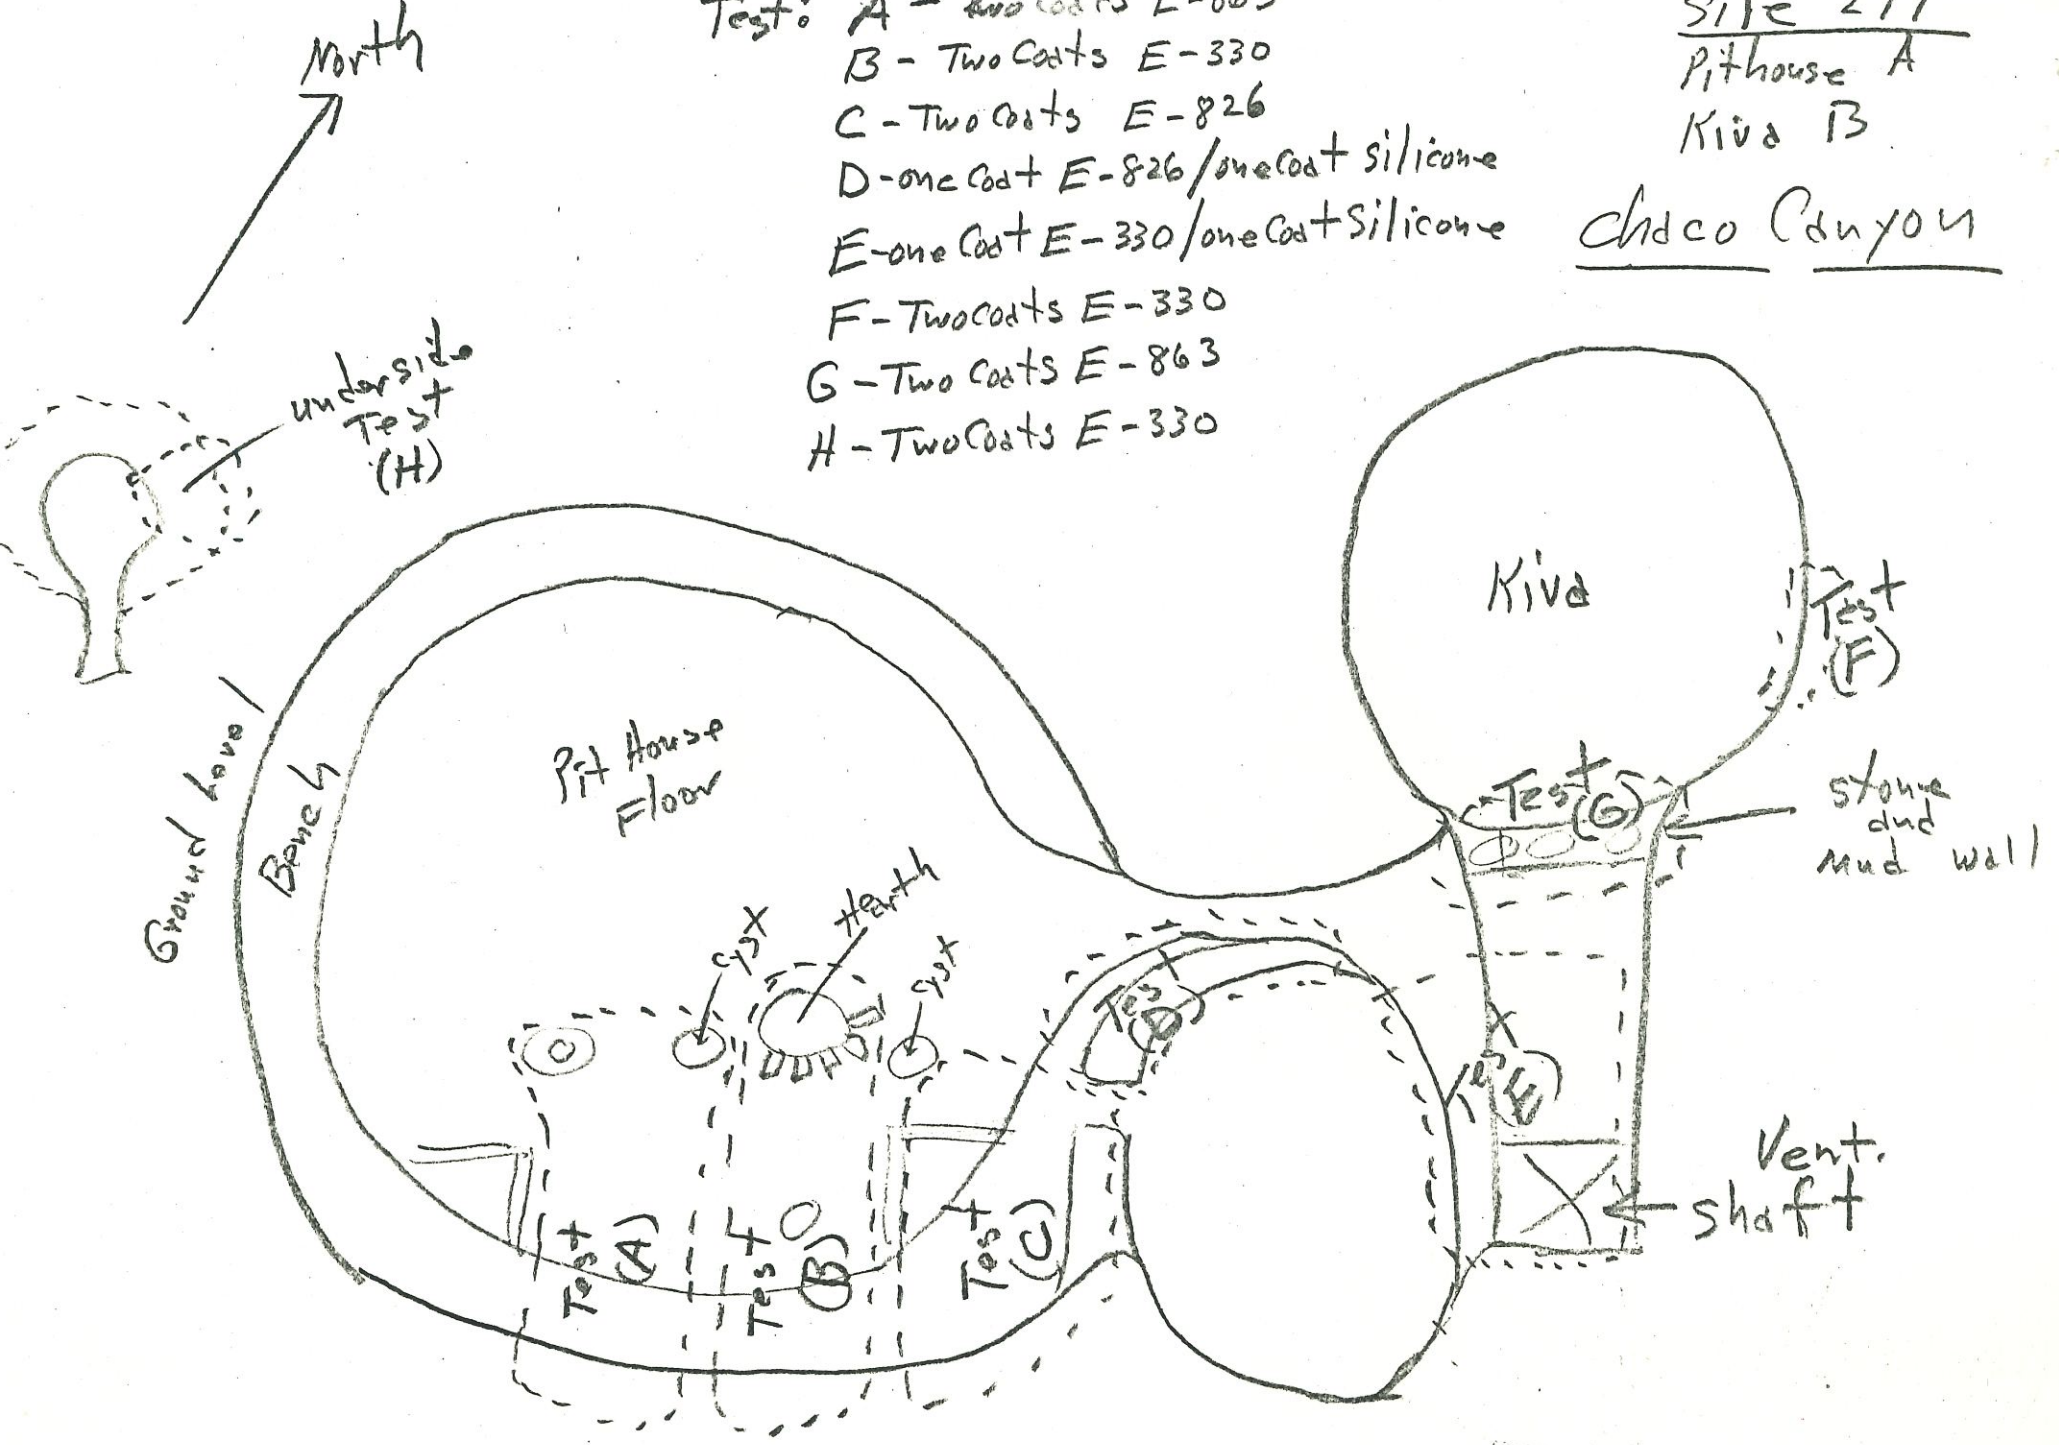 North
Test: A - Two Coats E-863
B - Two Coats E-330
C - Two Coats E-826
D - one Coat E-826/one Coat Silicone
E - one Coat E-330/one Coat Silicone
F - Two Coats E-330
G - Two Coats E-863
H - Two Coats E-330
Site
Pithouse A
Kiva B
Chaco Canyon
underside
Test
(H)
Kiva
Test
(F)
Test
(G)
stone
and
mud wall
Pit House
Floor
Ground Level
Bench
cyst
Hearth
cyst
Test
(D)
Test
(E)
Vent.
shaft
Test
(A)
Test
(B)
Test
(C)